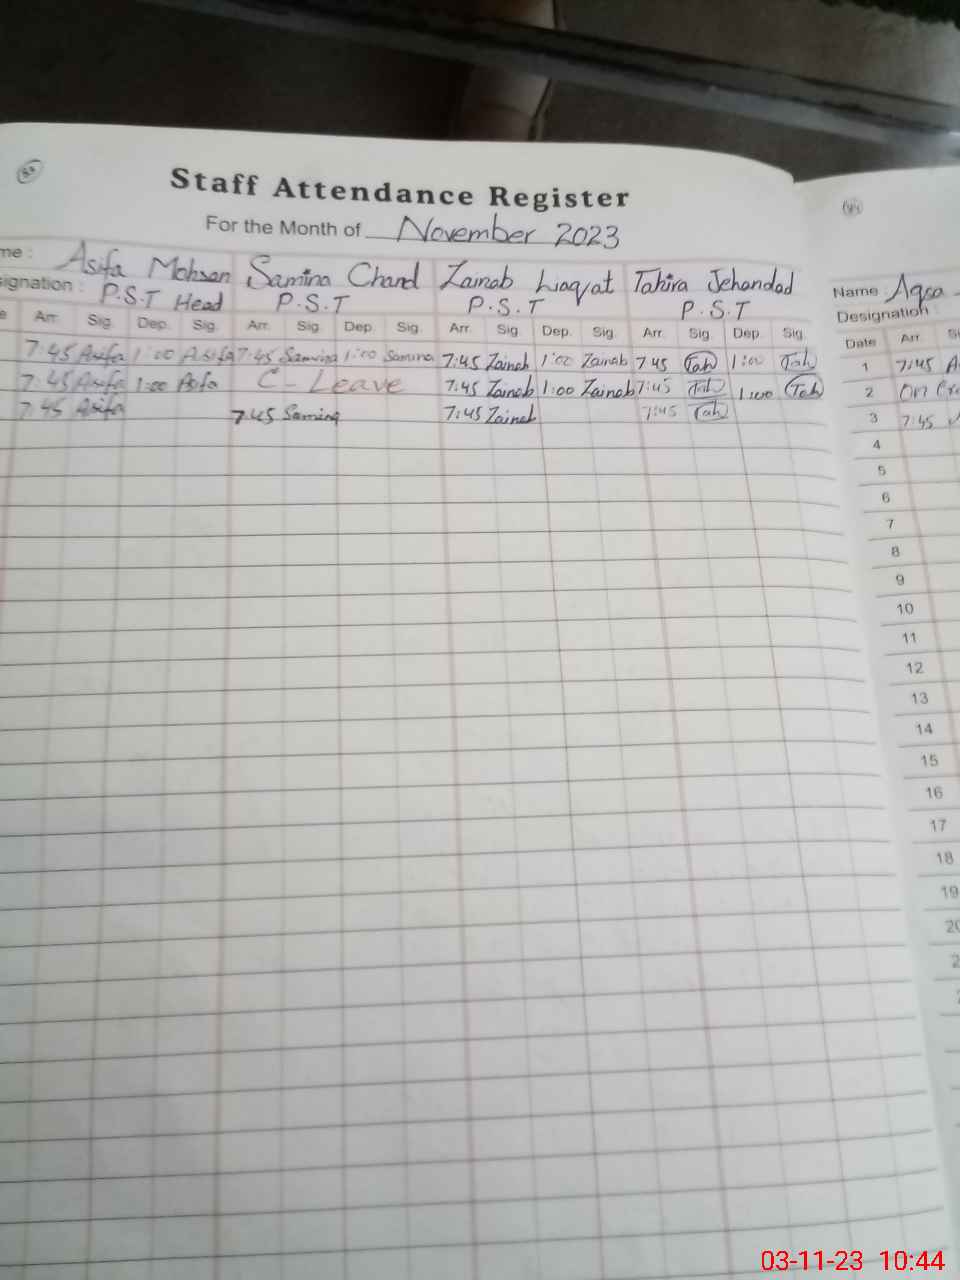 Staff Attendance Register
For the Month of November 2023
me : Asifa Mohsan Samina Chand Zainab Liaqat Tahira Jehandad
signation : P.S.T Head P.S.T P.S.T P.S.T
e Arr. Sig. Dep. Sig. Arr. Sig. Dep. Sig. Arr. Sig. Dep. Sig. Arr. Sig. Dep. Sig.
7:45 Asifa 1:00 Asifa 7:45 Samina 1:00 Samina 7:45 Zainab 1:00 Zainab 7 45 Tah 1:00 Tah
7:45 Asifa 1:00 Asifa C - Leave 7:45 Zainab 1:00 Zainab 7:45 Tah 1:00 Tah
7:45 Asifa 7:45 Samina 7:45 Zainab 7:45 Tah
Name : Aqsa
Designation :
Date Arr. S
1 7:45 A
2 On
3 7:45
4
5
6
7
8
9
10
11
12
13
14
15
16
17
18
19
03-11-23 10:44